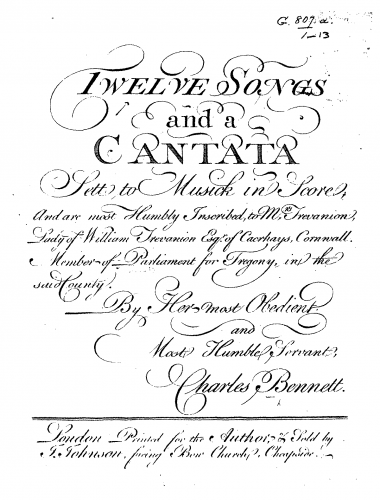 G. 809. a.
1-13
TWELVE SONGS
and a
CANTATA
Sett to Musick in Score,
And are most Humbly Inscribed, to Mrs. Trevanion,
Lady of William Trevanion Esqr. of Caerhays, Cornwall.
Member of Parliament for Tregony, in the
said County.
By Her most Obedient
and
Most Humble Servant,
Charles Bennett.
London Printed for the Author, & Sold by
J. Johnson, facing Bow Church, Cheapside.